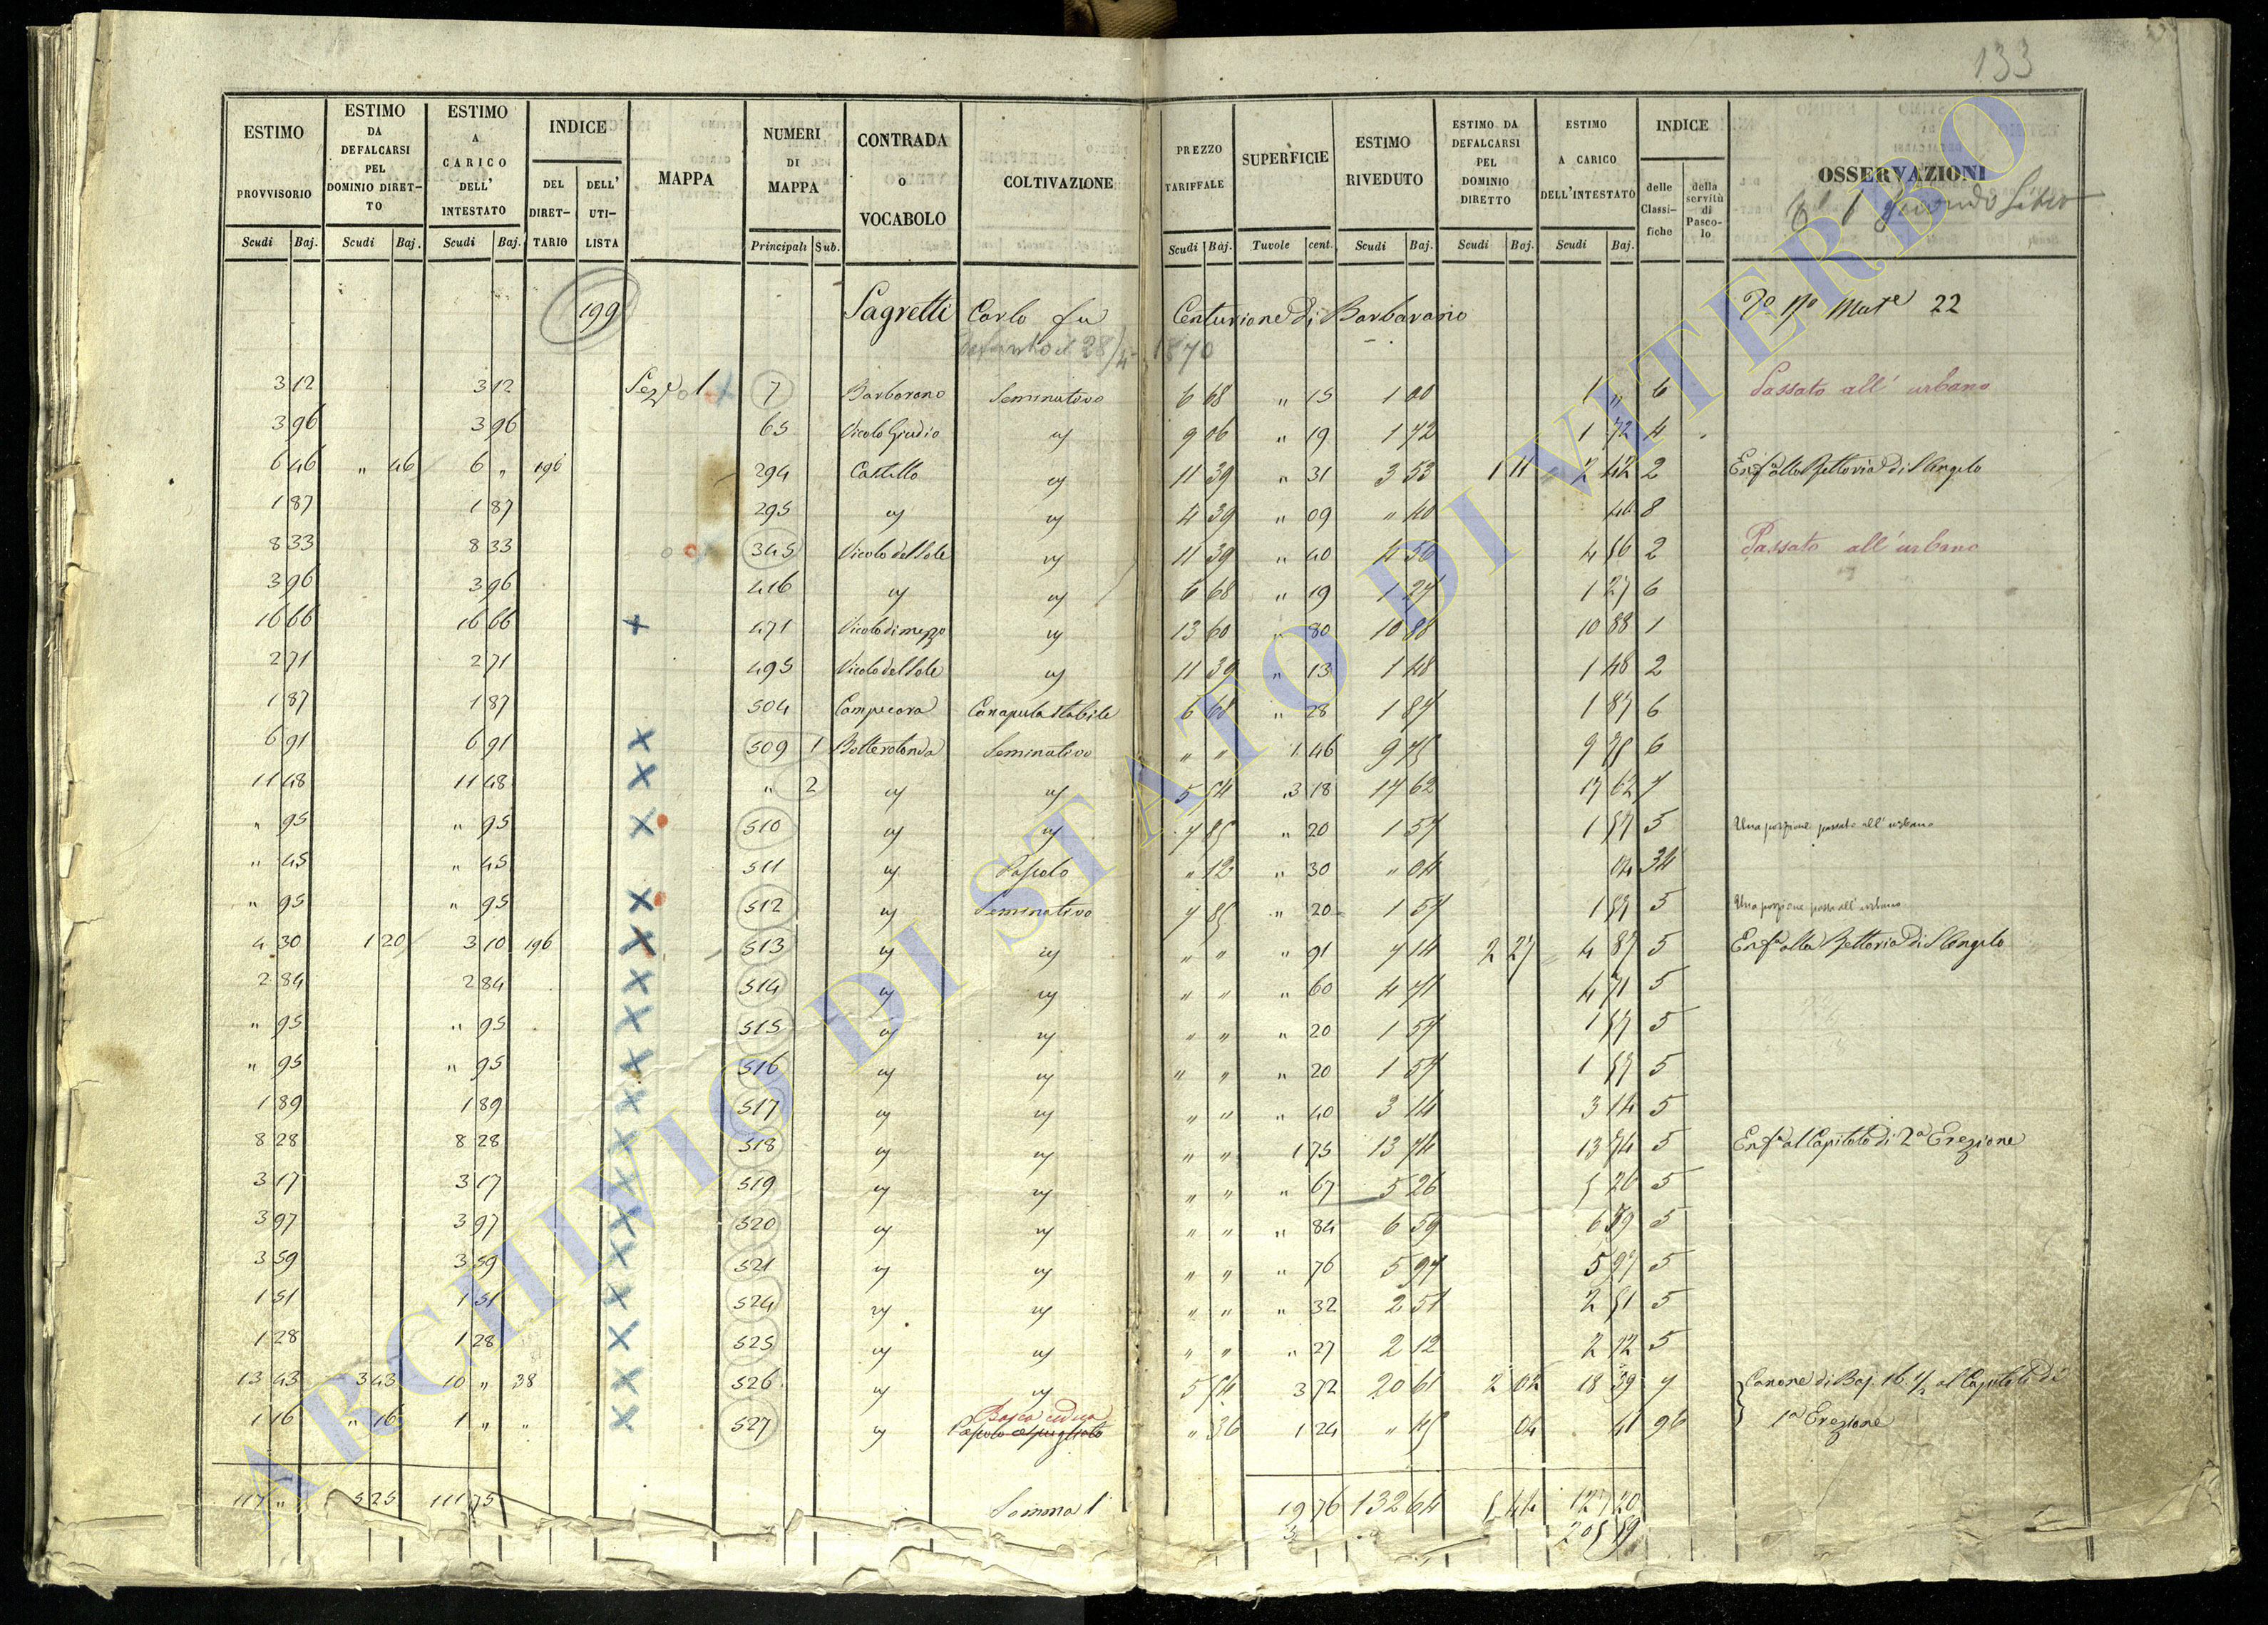 133
ESTIMO PROVVISORIO | ESTIMO DA DEFALCARSI PEL DOMINIO DIRETTO | ESTIMO A CARICO DELL' INTESTATO | INDICE DEL DIRETTARIO | DELL' UTILISTA | MAPPA | NUMERI DI MAPPA | CONTRADA O VOCABOLO | COLTIVAZIONE | PREZZO TARIFFALE | SUPERFICIE | ESTIMO RIVEDUTO | ESTIMO DA DEFALCARSI PEL DOMINIO DIRETTO | ESTIMO A CARICO DELL'INTESTATO | INDICE delle Classifiche | della servitù di Pascolo | OSSERVAZIONI
secondo Libro
Scudi Baj. | Scudi Baj. | Scudi Baj. | Principali Sub. | Scudi Baj. | Tavole cent. | Scudi Baj. | Scudi Baj. | Scudi Baj.
199 Sagretti Carlo fu Centurione di Barbarano 22
28/4 1870
3 12 | 3 12 | 7 | Barbarano | Seminativo | 6 68 | " 15 | 1 00 | 1 " | 6 | Passato all' urbano
3 96 | 3 96 | 65 | Vicolo Giudio | " | 9 06 | " 19 | 1 72 | 1 72 | 4
6 46 | " 46 | 6 " | 196 | 294 | Castello | " | 11 39 | " 31 | 3 53 | 1 11 | 2 42 | 2 | Enf.a alla Rettoria di S Angelo
1 87 | 1 87 | 295 | " | " | 4 39 | " 09 | " 40 | 40 | 8
8 33 | 8 33 | 345 | Vicolo del Sole | " | 11 39 | " 40 | 4 56 | 4 56 | 2 | Passato all' urbano
3 96 | 3 96 | 416 | " | " | 6 68 | " 19 | 1 27 | 1 27 | 6
16 66 | 16 66 | 471 | Vicolo di mezzo | " | 13 60 | " 80 | 10 88 | 10 88 | 1
2 71 | 2 71 | 495 | Vicolo del Sole | " | 11 39 | " 13 | 1 48 | 1 48 | 2
1 87 | 1 87 | 504 | Campicora | Canapula stabile | 6 68 | " 28 | 1 87 | 1 87 | 6
6 91 | 6 91 | 509 1 | Botterotonda | Seminativo | " " | 1 46 | 9 75 | 9 75 | 6
11 48 | 11 48 | " 2 | " | " | 5 54 | 3 18 | 17 62 | 17 62 | 7
" 95 | " 95 | 510 | " | " | 7 85 | " 20 | 1 57 | 1 57 | 5 | Una porzione passato all' urbano
" 45 | " 45 | 511 | " | Pascolo | " 12 | " 30 | " 04 | 04 | 34
" 95 | " 95 | 512 | " | Seminativo | 7 85 | " 20 | 1 57 | 1 57 | 5 | Una porzione passa all' urbano
4 30 | 1 20 | 3 10 | 196 | 513 | " | " | " " | " 91 | 7 14 | 2 27 | 4 87 | 5 | Enf.a alla Rettoria di S Angelo
2 84 | 2 84 | 514 | " | " | " " | " 60 | 4 71 | 4 71 | 5
" 95 | " 95 | 515 | " | " | " " | " 20 | 1 57 | 1 57 | 5
" 95 | " 95 | 516 | " | " | " " | " 20 | 1 57 | 1 57 | 5
1 89 | 1 89 | 517 | " | " | " " | " 40 | 3 14 | 3 14 | 5
8 28 | 8 28 | 518 | " | " | " " | 1 75 | 13 74 | 13 74 | 5 | Enf.a al Capitolo di 2a Erezione
3 17 | 3 17 | 519 | " | " | " " | " 67 | 5 26 | 5 26 | 5
3 97 | 3 97 | 520 | " | " | " " | " 84 | 6 59 | 6 59 | 5
3 59 | 3 59 | 521 | " | " | " " | " 76 | 5 97 | 5 97 | 5
1 51 | 1 51 | 524 | " | " | " " | " 32 | 2 51 | 2 51 | 5
1 28 | 1 28 | 525 | " | " | " " | " 27 | 2 12 | 2 12 | 5
13 43 | 3 43 | 10 " | 38 | 526 | " | " | 5 54 | 3 72 | 20 61 | 2 02 | 18 59 | 7 | Canone di Baj. 16 1/2 al Capitolo di
1 16 | " 16 | 1 " | " | 527 | " | Bosco ceduo Pascolo cespugliato | " 36 | 1 24 | " 45 | 04 | 41 | 96 | 1a Erezione
117 " | 5 25 | 111 75 | Somma 1 | 19 76 | 132 64 | 5 44 | 127 20
205 59
ARCHIVIO DI STATO DI VITERBO